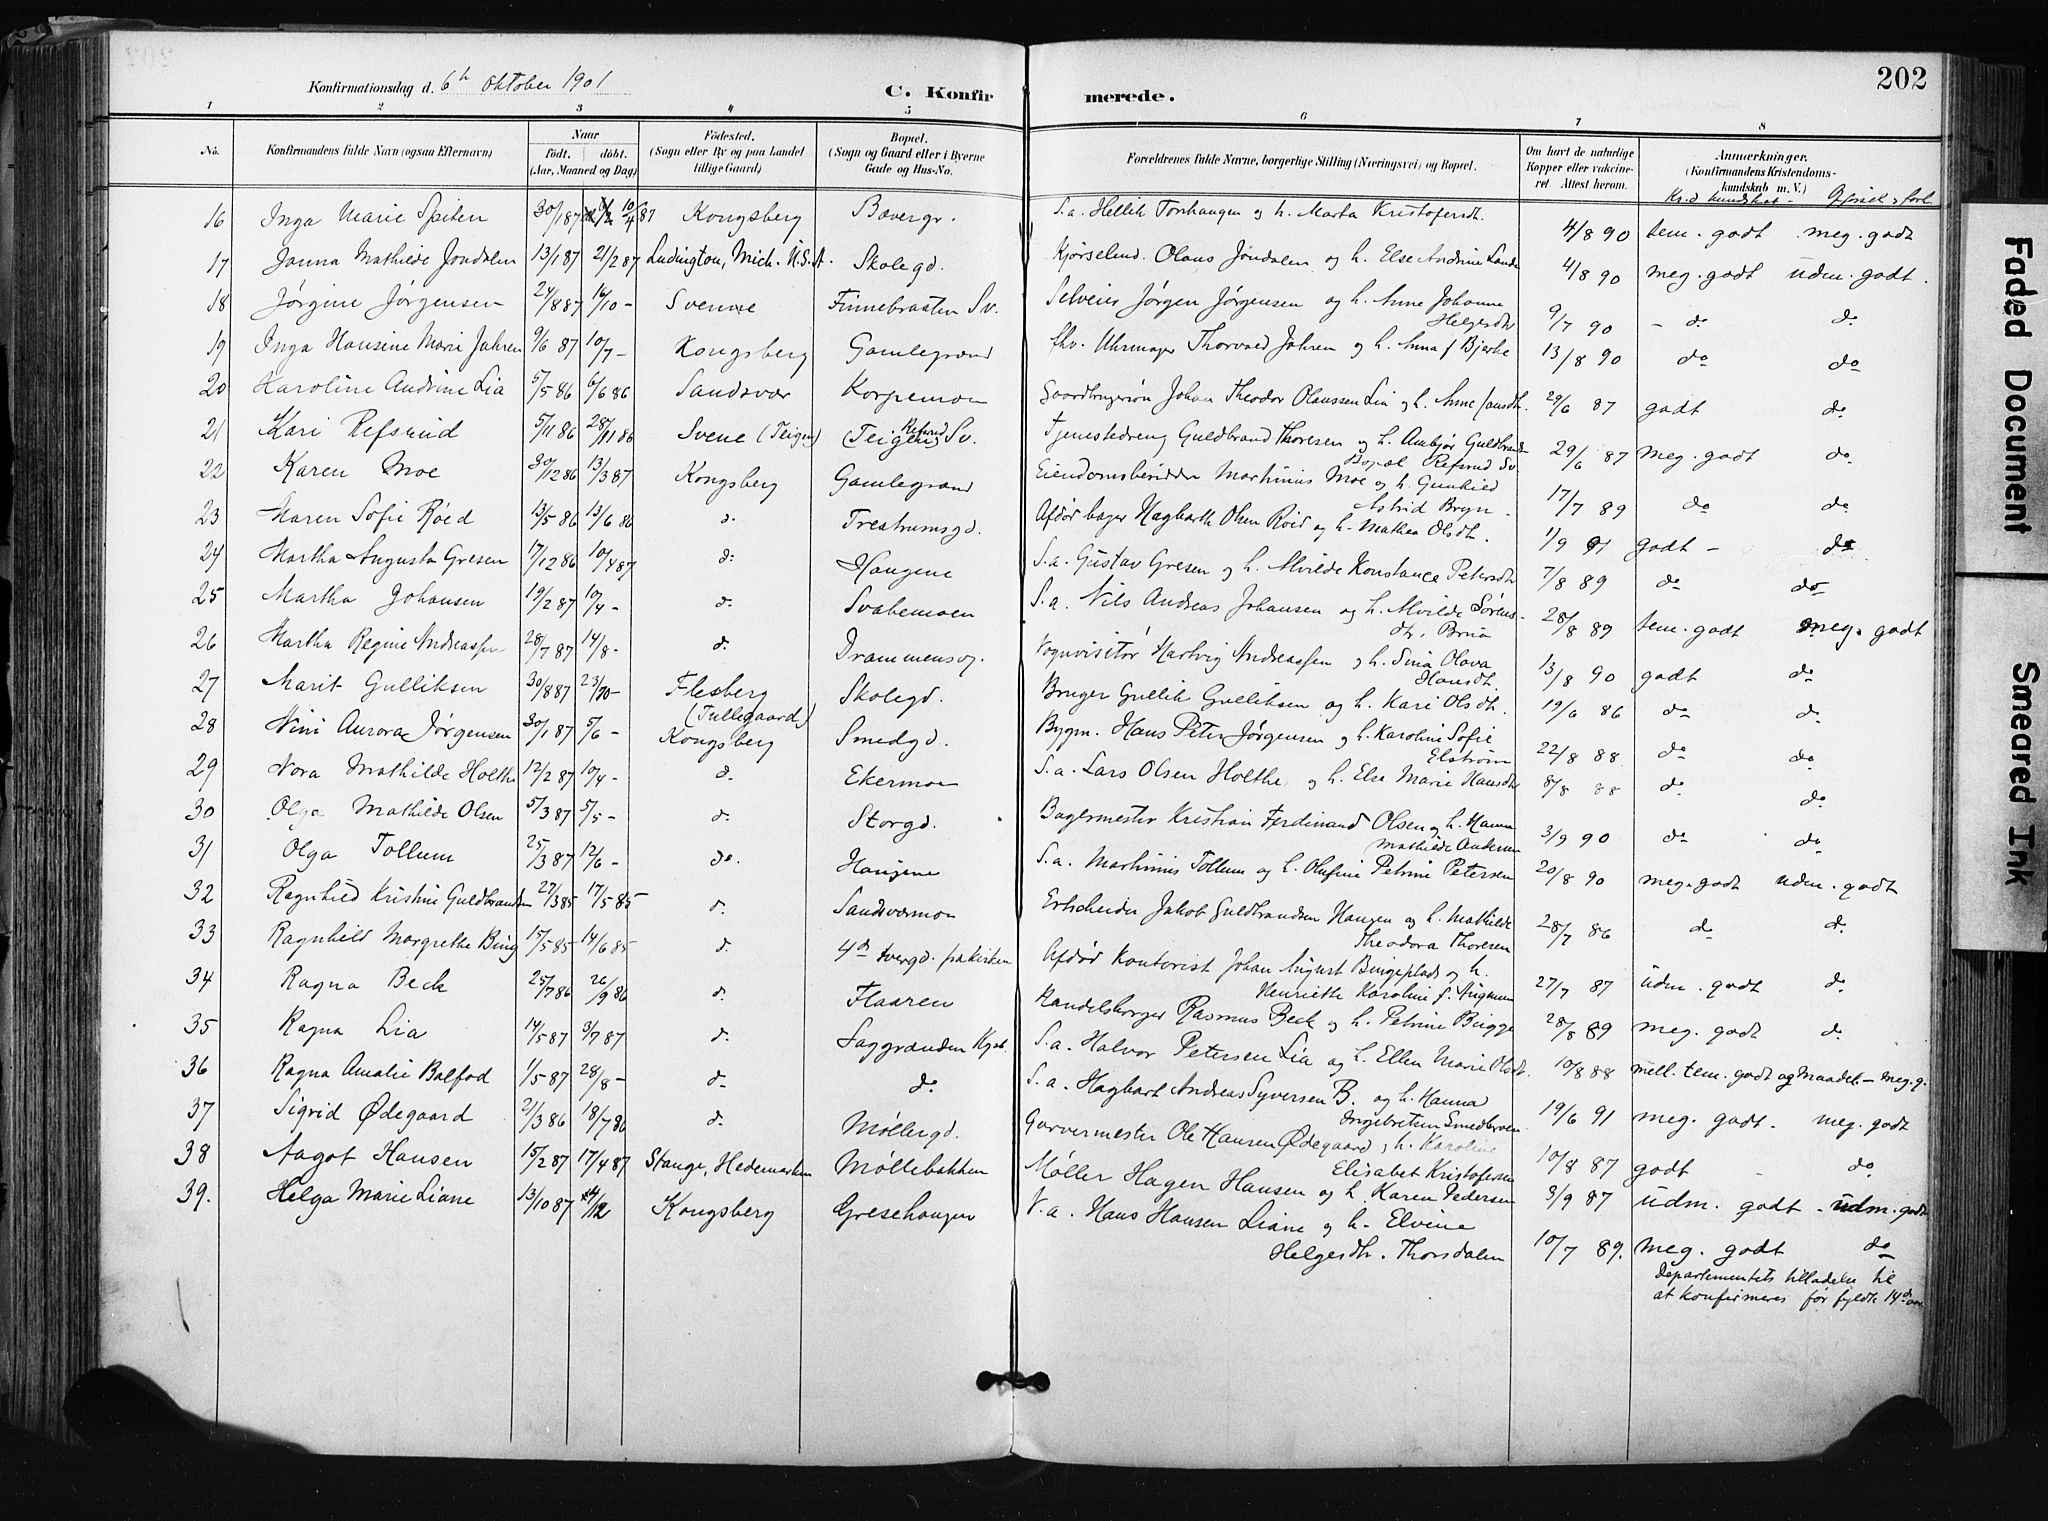 202
Konfirmationsdag d. 6h Oktober 1901
C. Konfirmerede.
1 2 3 4 5 6 7 8
No. Konfirmandens fulde Navn (ogsaa Efternavn) Naar födt. döbt. (Aar, Maaned og Dag) Födested. (Sogn eller By og paa Landet tillige Gaard) Bopæl. (Sogn og Gaard eller i Byerne Gade og Hus-No. Forældrenes fulde Navne, borgerlige Stilling (Næringsvei) og Bopæl. Om havt de naturlige Kopper eller vaccineret. Attest herom. Anmærkninger. (Konfirmandens Kristendomskundskab m. V.)
16 Inga Marie Spiten 30/1 87 10/4 87 Kongsberg Bævergr. S.a. Hellik Tonhaugen og h. Marta Kristofersdt. 4/8 90 tem. godt meg. godt
17 Janna Mathilde Jondalen 13/1 87 21/2 87 Ludington, Mich. U.S.A. Skolegd. Kjørselmd. Olaus Jøndalen og h. Else Andrine Lande 4/8 90 meg. godt udm. godt.
18 Jørgine Jørgensen 24/8 87 16/10 - Svenne Finnebraaten Sv. Selveier Jørgen Jørgensen og h. Anne Johanne
Helgesdt. 9/7 90 - do do
19 Inga Hansine Marie Jahren 9/6 87 10/7 - Kongsberg Gamlegrænd fhv. Uhrmager Thorvald Jahren og h. Anna f Bjerke 13/8 90 do do
20 Karoline Andrine Lia 5/5 86 6/6 86 Sandsvær Korpemoen Gaardbruger Johan Theodor Olaussen Lia og h. Anne Jansdt. 29/6 87 godt do
21 Kari Refsrud 5/11 86 28/11 86 Svene (Teigen) (Teigen) Refsrud Sv. Tjenestedreng Guldbrand Thoresen og h. Ambjør Guldbrandsd
Bopæl Refsrud Sv. 29/6 87 meg. godt do
22 Karen Moe 30/12 86 13/3 87 Kongsberg Gamlegrænd Eiendomsbesidder Martinius Moe og h. Gunhild
Astrid Bryn. 17/7 89 do do
23 Maren Sofie Röed 13/5 86 13/6 86 do Trestrumsgd. Afdør bager Hagbarth Olsen Röed og h. Mathea Olsdt. 1/9 91 godt - do
24 Martha Augusta Gresen 17/12 86 10/4 87 do Haugene S.a. Gustav Gresen og h. Alvilde Konstance Petersdt 7/8 89 do do
25 Martha Johansen 19/2 87 10/4 - do Svabemoen S.a. Nils Andreas Johansen og h. Alvilde Sörens-
dt. Brua 28/8 89 tem. godt meg. godt
26 Martha Regine Andreassen 28/7 87 14/8 - do Drammensv. Vognvisitör Hartvig Andreassen og h. Sina Olava
Hansdt. 13/8 90 godt do
27 Marit Gulliksen 30/8 87 23/10 - Flesberg
(Tullegaarde) Skolegd. Bruger Gullik Gulliksen og h. Kari Olsdt. 19/6 86 do do
28 Nini Aurora Jörgensen 30/1 87 5/6 - Kongsberg Smedgd. Bygm. Hans Peter Jörgensen og h. Karoline Sofie
Elström 22/8 88 do do
29 Nora Mathilde Holthe 12/2 87 10/4 - do Ekermoen S.a. Lars Olsen Holthe og h. Else Marie Hansdt. 8/8 88 do do
30 Olga Mathilde Olsen 5/3 87 5/5 - do Storgd. Bagermester Kristian Ferdinand Olsen og h. Hanna
Mathilde Andersen 3/9 90 do do
31 Olga Tollum 25/3 87 12/6 - do. Haugene S.a. Martinius Tollum og h. Olufine Petrine Petersen 20/8 90 meg. godt udm. godt
32 Ragnhild Kristine Guldbrandsen 27/3 85 17/5 85 do Sandsværmoen Ertscheider Jakob Guldbrandsen Haugen og h. Mathilde
Theodora Thoresen 28/7 86 do do
33 Ragnhild Margrethe Bing 15/5 85 14/6 85 do 4de tvergd. fra kirken Afdød Kontorist Johan August Bingeplads og h.
Henriette Karoline f. 27/7 87 udm. godt do
34 Ragna Beck 25/7 86 26/9 86 do Flaaren Handelsborger Rasmus Beck og h. Petrine Brigge 28/8 89 meg. godt do
35 Ragna Lia 14/5 87 3/7 87 do Saggrænden S.a. Halvor Petersen Lia og h. Ellen Marie Olsdt. 10/8 88 mell. tem. godt og maadel. - meg. g.
36 Ragna Amalie Balfod 1/5 87 28/8 - do do S.a. Hagbart Andreas Syversen B. og h. Hanna
Ingebretsen Smedbroen 19/6 91 meg. godt. meg. godt
37 Sigrid Ødegaard 21/3 86 18/7 86 do Møllergd. Garvermester Ole Hansen Ødegaard og h. Karoline
Elisabet Kristofersen 10/8 87 godt - do
38 Aagot Hansen 15/2 87 17/4 87 Stange, Hedemarken Møllebakken Møller Hagen Hansen og h. Karen Pedersen 3/9 87 udm. godt - udm. godt
39. Helga Marie Liane 13/10 87 4/12 Kongsberg Gresehaugen V.a. Hans Hansen Liane og h. Elvine
Helgesdt. Thorsdalen 10/7 89. meg. godt do
Departementets tilladelse til
at konfirmeres før fyldte 14de aar.
Faded Document
Smeared Ink